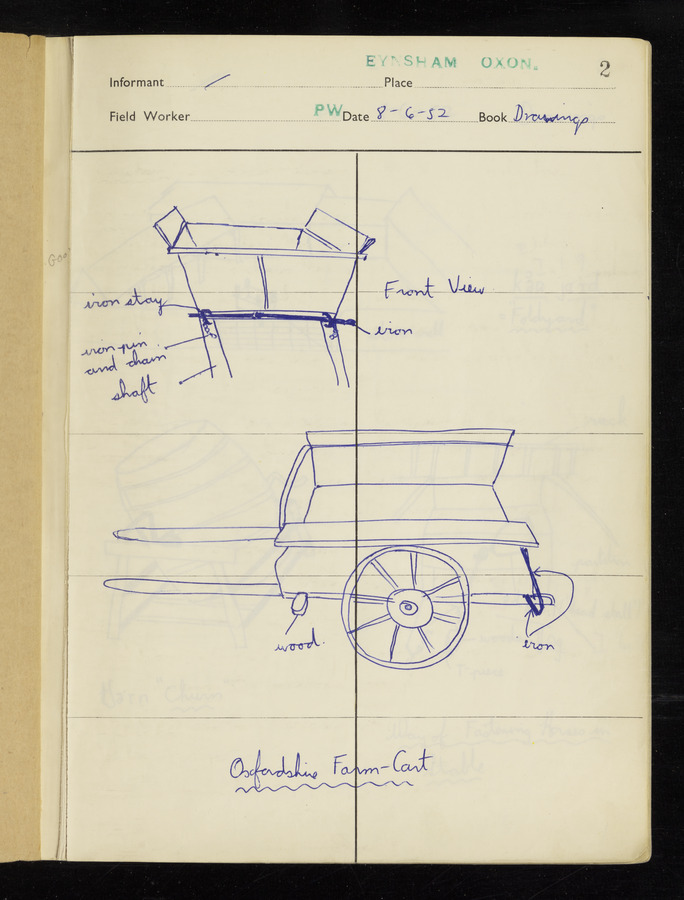 EYNSHAM OXON.
2
Informant / Place
Field Worker PW Date 8-6-52 Book Drawings
Front View
iron stay
iron
iron pin
and chain
shaft
wood
iron
Oxfordshire Farm-Cart